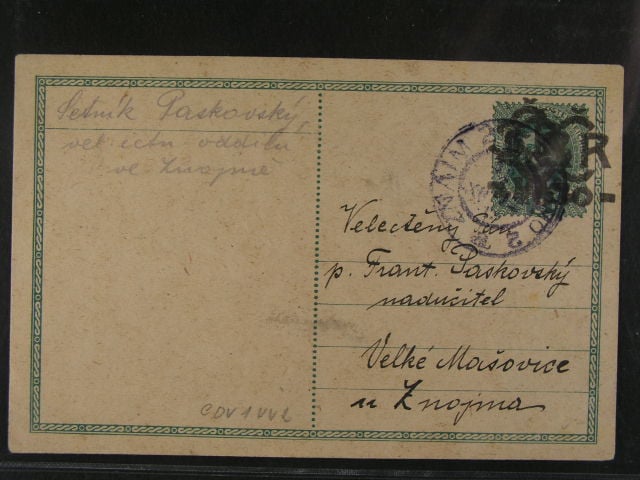 Setník Paskovský,
vel ictn oddílu
ve Znojmě
ZNAIM 2
ZNOJMO 2
Velectěný pan
p. Frant. Paskovský
nadučitel
Velké Mašovice
u Znojma
CDV1 VV2